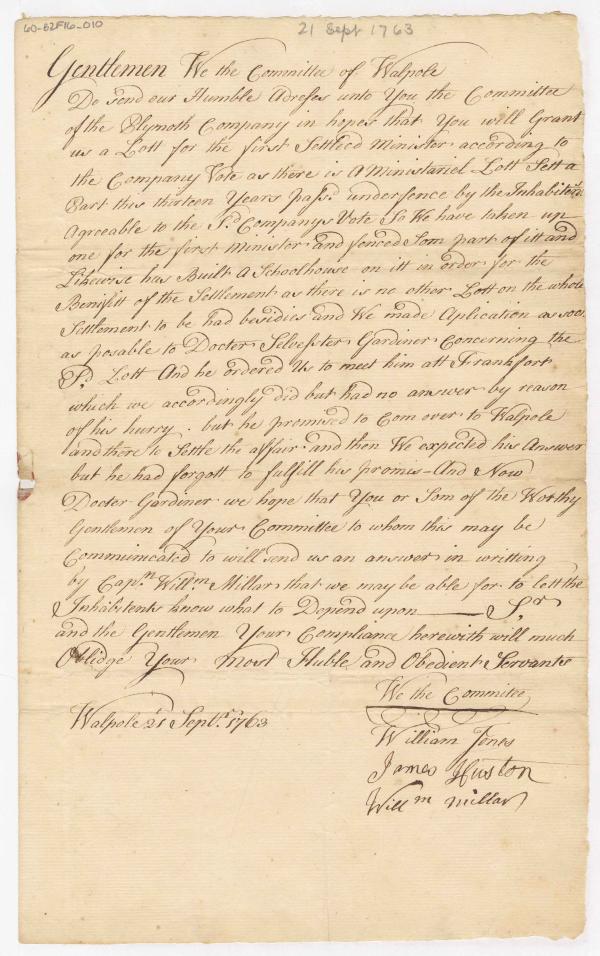 60-B2F16-010
21 Sept 1763
Gentlemen We the Committee of Walpole
Do Send our Humble Adreses unto You the Committee
of the Plymoth Company in hopes that You will Grant
us a Lott for the first Settled Minister according to
the Company Vote as there is A Ministariel Lott Sett a
Part this thirteen Years Pass.d undersence by the Inhabitents
Agreeable to the S.d Companys Vote So We have taken up
one for the first Ministor and fenced Som part of itt and
Likewise has Built A Schoolhouse on itt in order for the
Benifitt of the Settlement as there is no other Lott on the whole
Settlement to be had besidies and We made Aplication as soon
as posable to Docter Selvester Gardiner Concerning the
S.d Lott And he ordered Us to meet him att Frankfort
which we accordingly did but had no answer by reason
of his hurry. but he promised to Com over to Walpole
and there to Settle the affair and then We expected his Answer
but he had forgott to fulfill his promis - And Now
Docter Gardiner we hope that You or Som of the Worthy
Gentlemen of Your Committee to whom this may be
Communicated to will send us an answer in writting
by Cap.tn Will.m Millar that we may be able for to lett the
Inhabitents know what to Depend upon — S.r
and the Gentlemen Your Compliance herewith will much
Oblidge Your most Huble and Obedient Servants
We the Committee
Walpole 21 Sept.r 1763
William Jones
James Huston
Will.m Millar